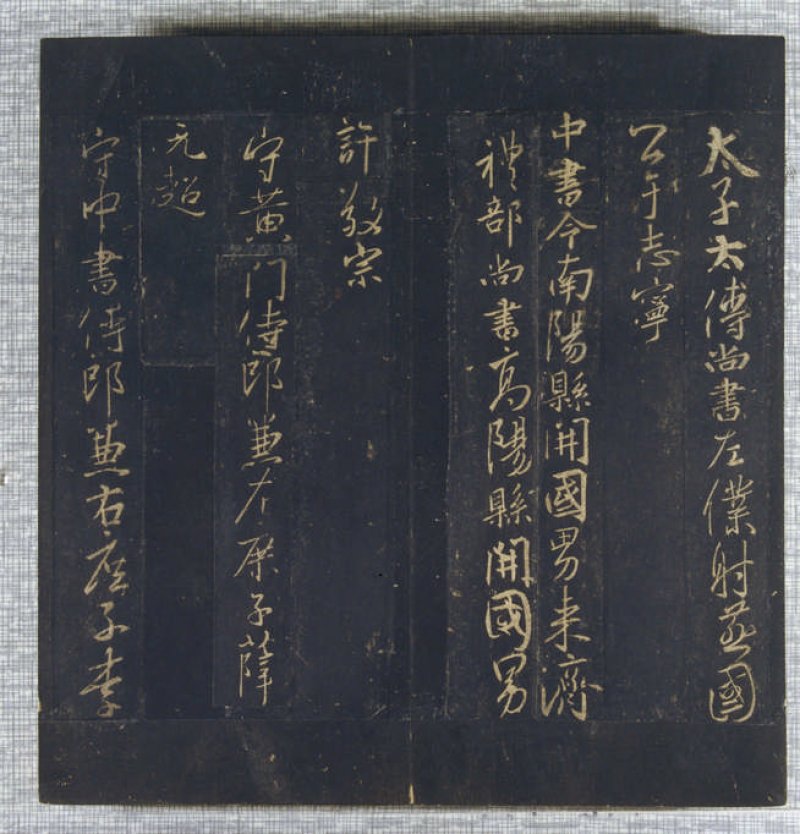 太子太傅尚書左僕射燕國
公于志寧
中書令南陽縣開國男来濟
禮部尚書高陽縣開國男
許敬宗
守黄門侍郎兼左庶子薛
元超
守中書侍郎兼右庶子李